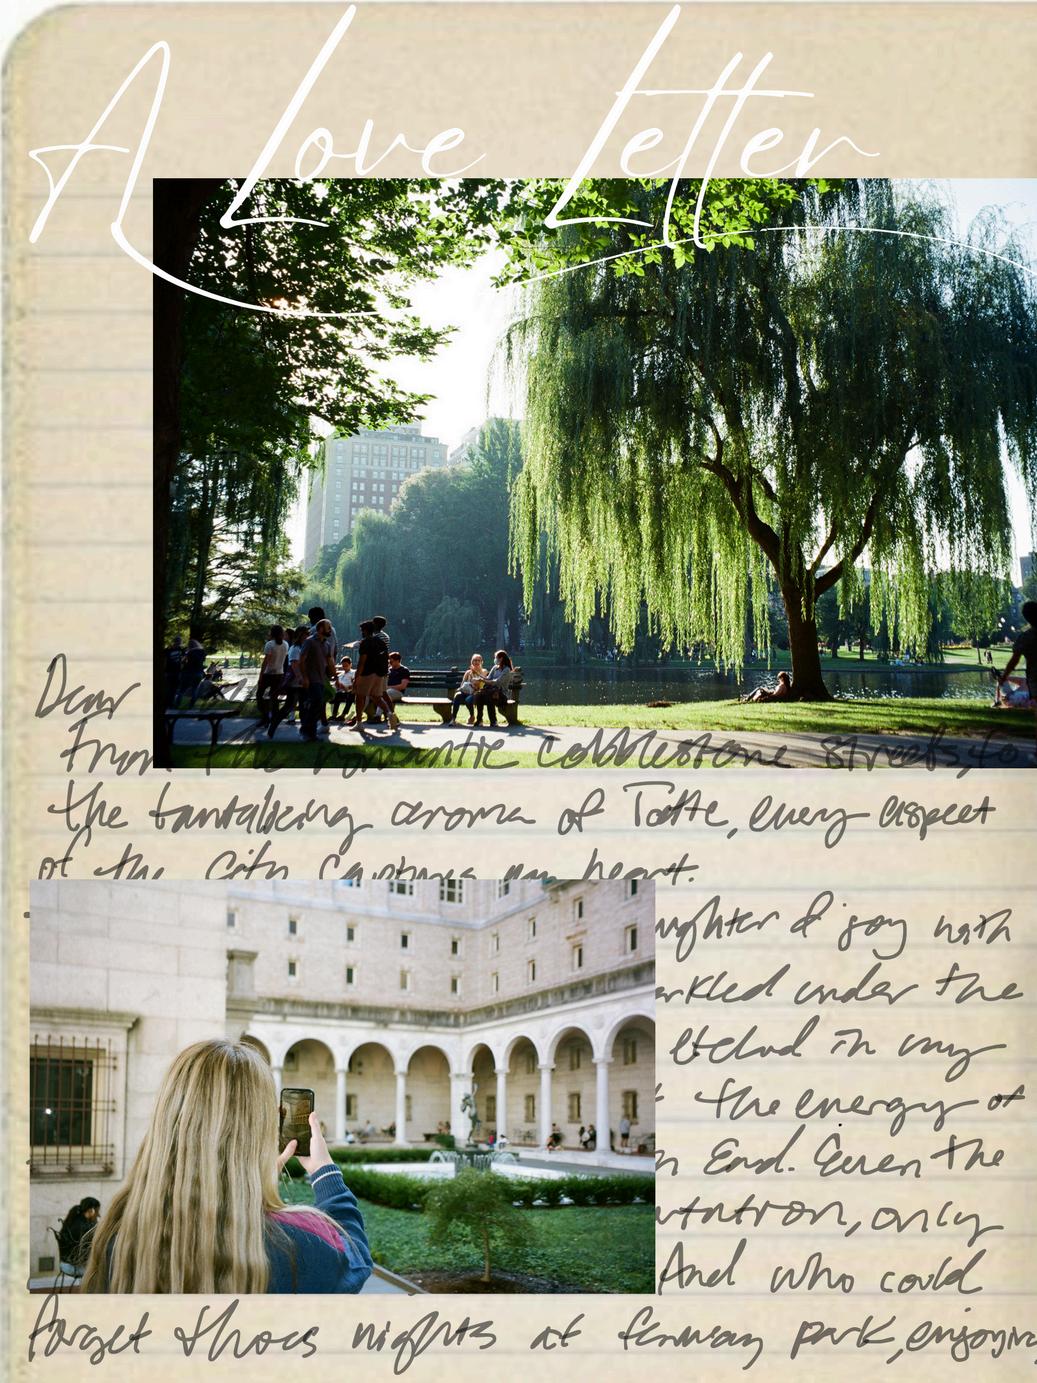 A Love Letter
Dear
From the romantic cobblestone streets, to
the tantalizing aroma of Tatte, every aspect
of the city captures my heart.
ughter & joy with
arkled under the
etched in my
the energy of
End. Even the
only
And who could
forget those nights at fenway park, enjoying